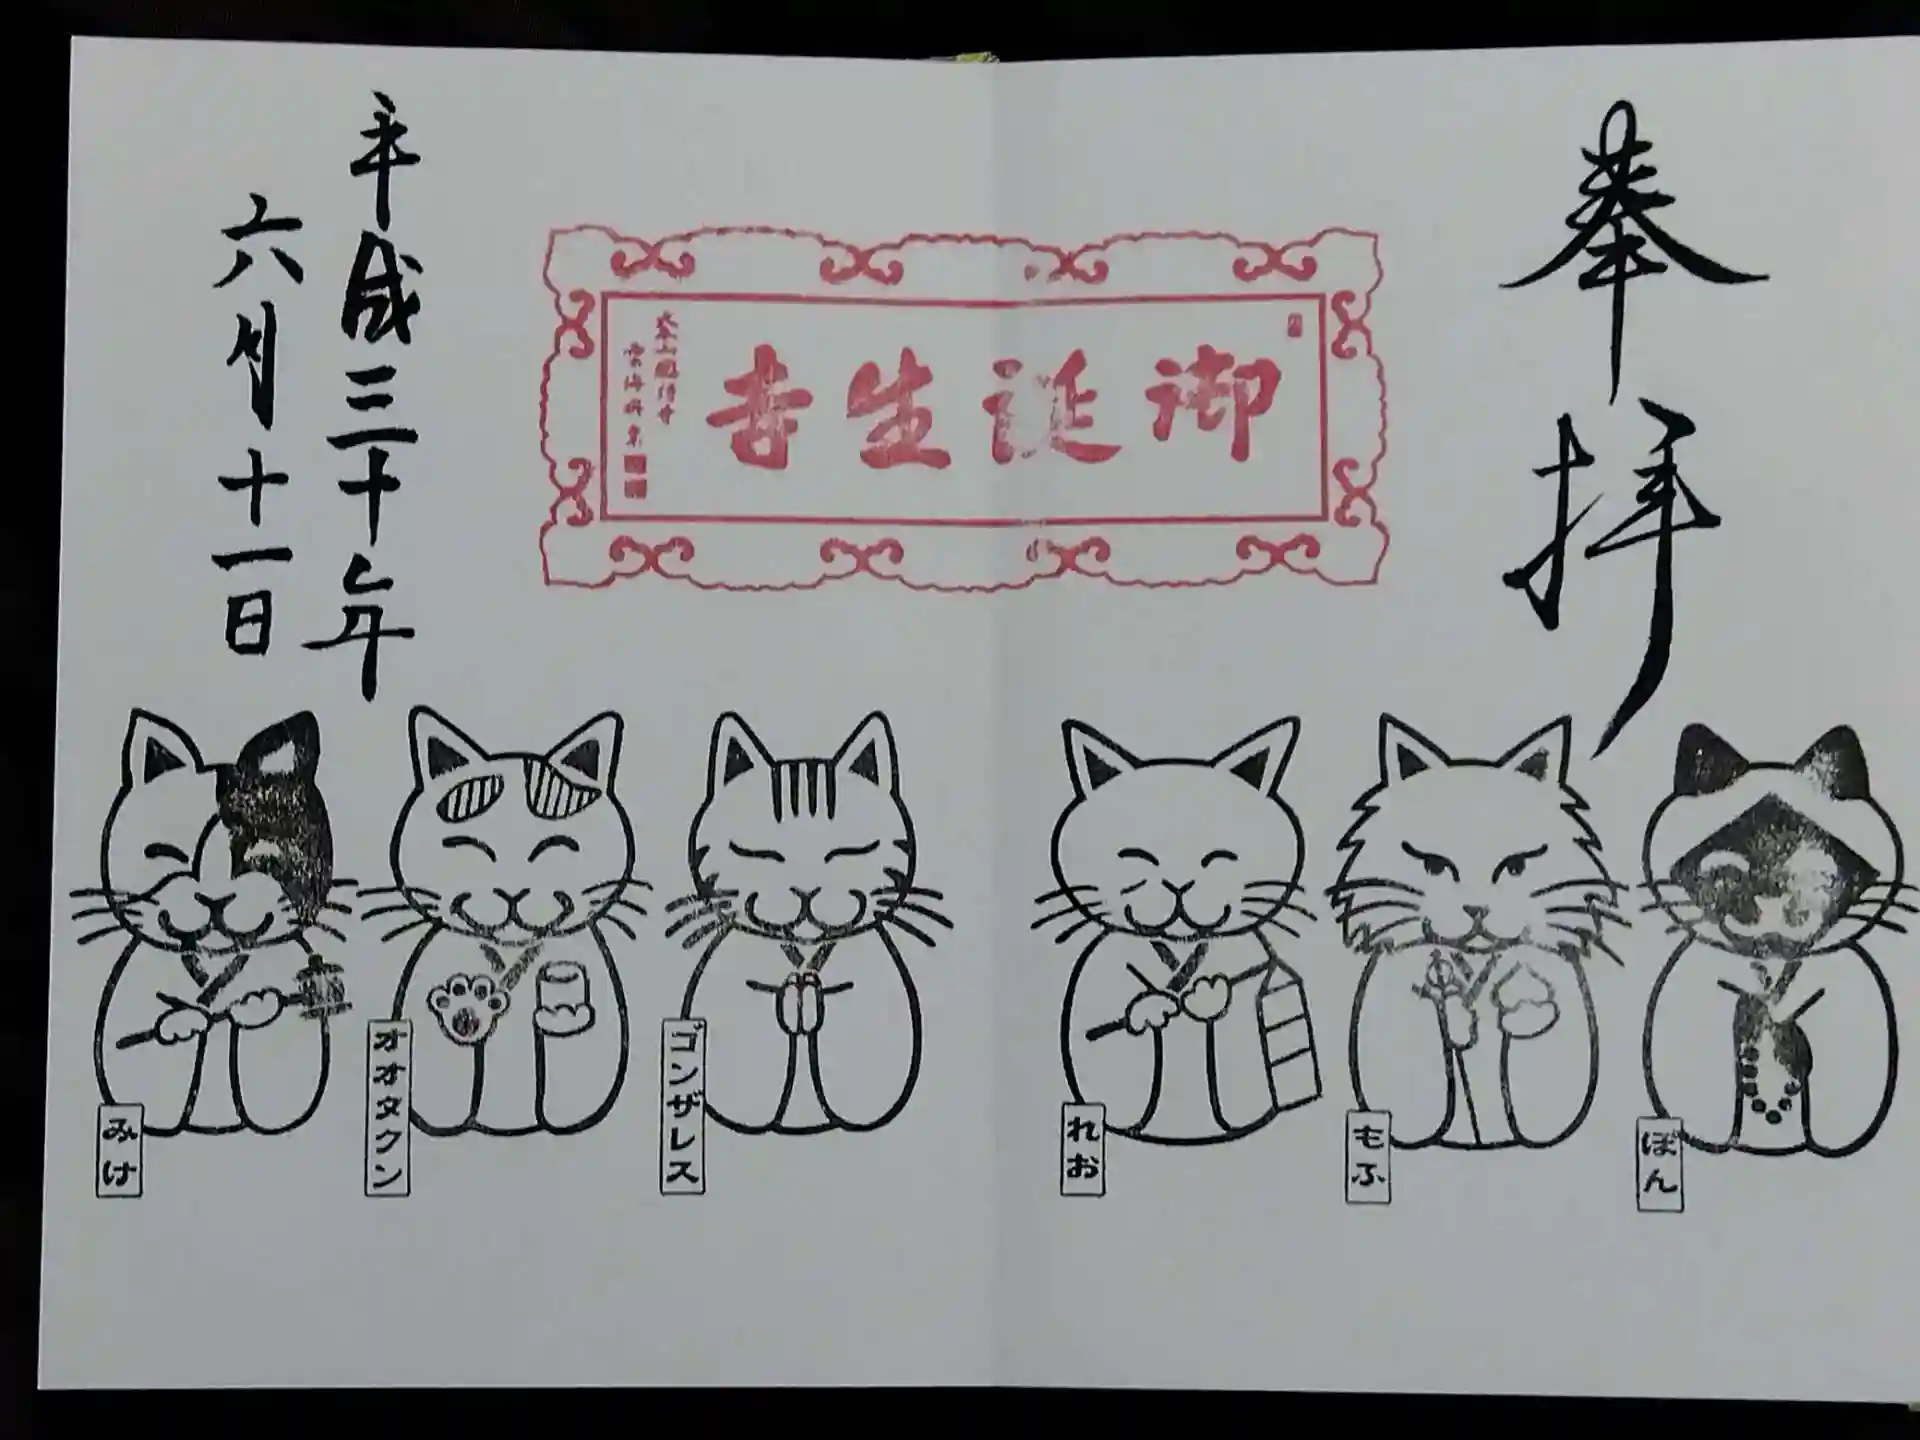 奉拝
御誕生寺
平成三十年
六月十一日
ぽん
もふ
れお
ゴンザレス
オオタクン
みけ